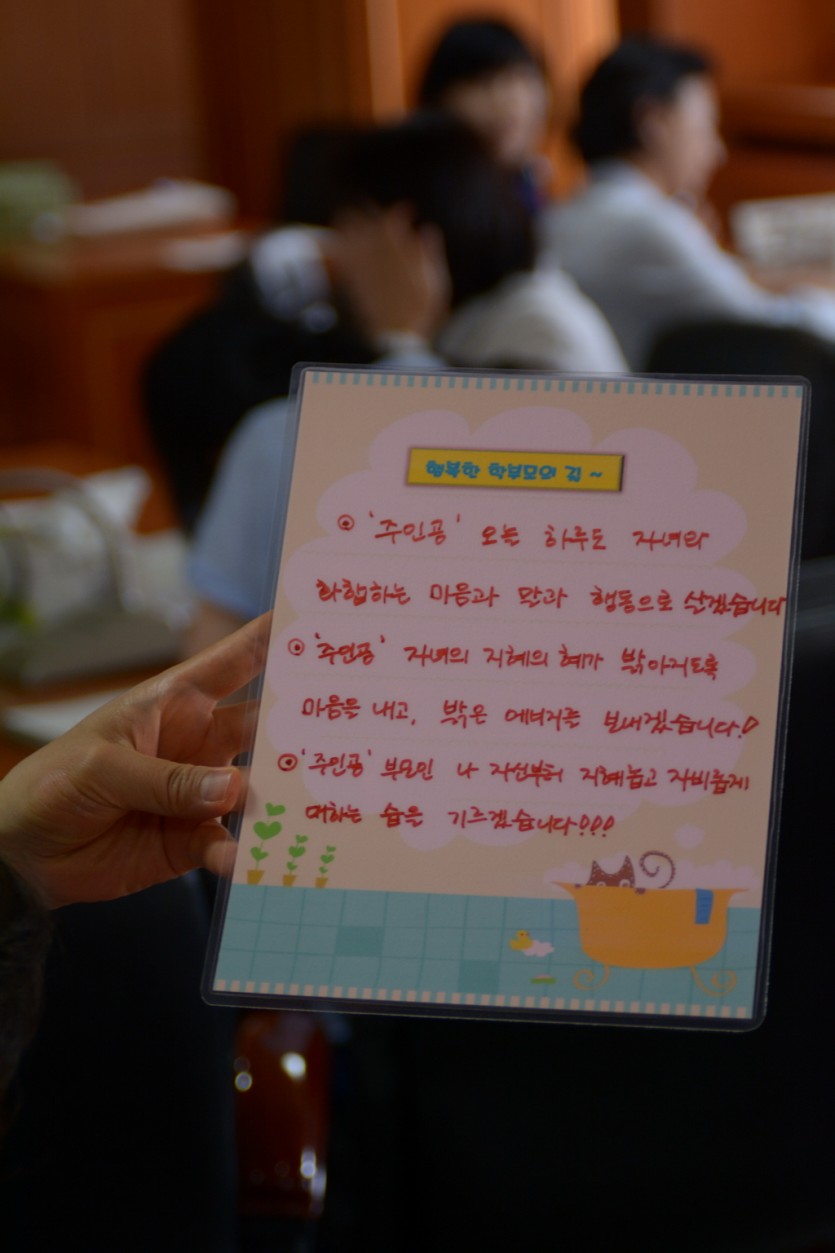 행복한 학부모의 길 ~
⊙ '주인공' 오늘 하루도 자녀와
화합하는 마음과 말과 행동으로 살겠습니다
⊙ '주인공' 자녀의 지혜의 혜가 밝아지도록
마음을 내고, 밝은 에너지를 보내겠습니다!
⊙ '주인공' 부모인 나 자신부터 지혜놉고 자비롭게
대하는 습을 기르겠습니다!!!